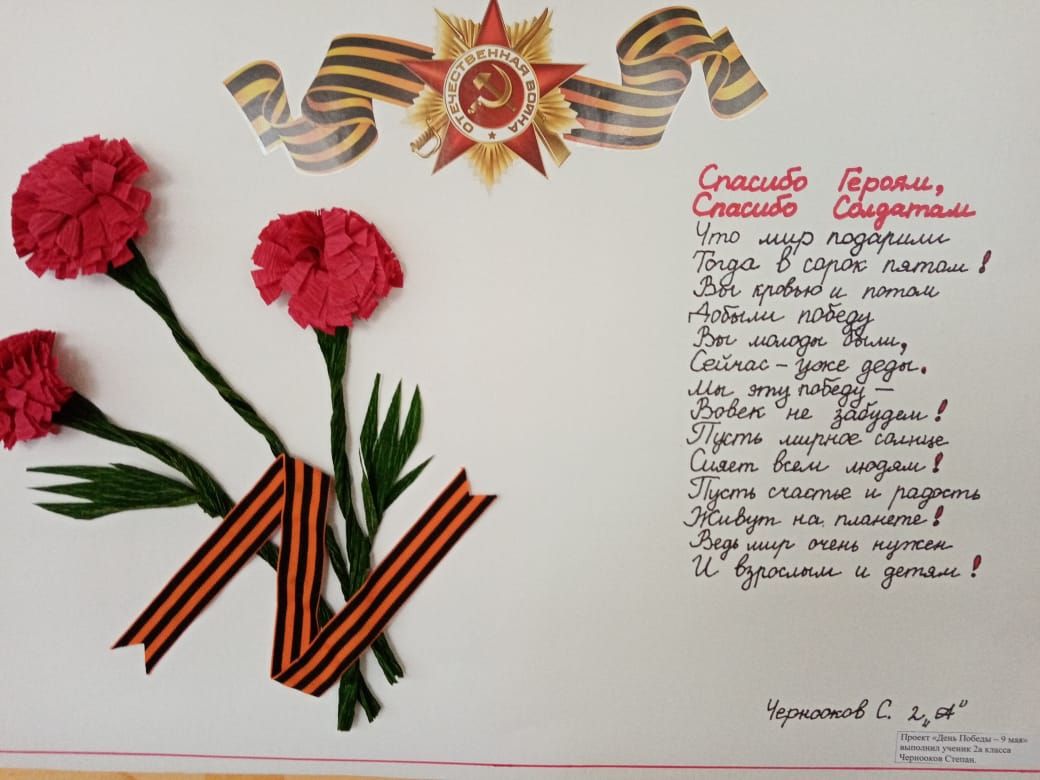 ОТЕЧЕСТВЕННАЯ ВОЙНА
Спасибо Героям,
Спасибо Солдатам
Что мир подарили
Тогда в сорок пятом!
Вы кровью и потом
Добыли победу
Вы молоды были,
Сейчас - уже деды.
Мы эту победу -
Вовек не забудем!
Пусть мирное солнце
Сияет всем людям!
Пусть счастье и радость
Живут на планете!
Ведь мир очень нужен
И взрослым и детям!
Чернооков С. 2 „А"
Проект «День Победы – 9 мая»
выполнил ученик 2а класса
Чернооков Степан.